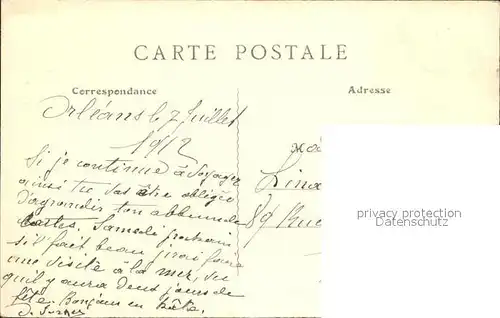 CARTE POSTALE
Correspondance
Adresse
Orléans le 7 Juillet
1912
Si je continue à voyager
ainsi tu vas être obligée
d'agrandir ton album de
cartes. Samedi prochain
s'il fait beau j'irai faire
une visite à la mer, vu
qu'il y aura deux jours de
fête. Bonjour en hâte.
89 Rue
privacy protection
Datenschutz